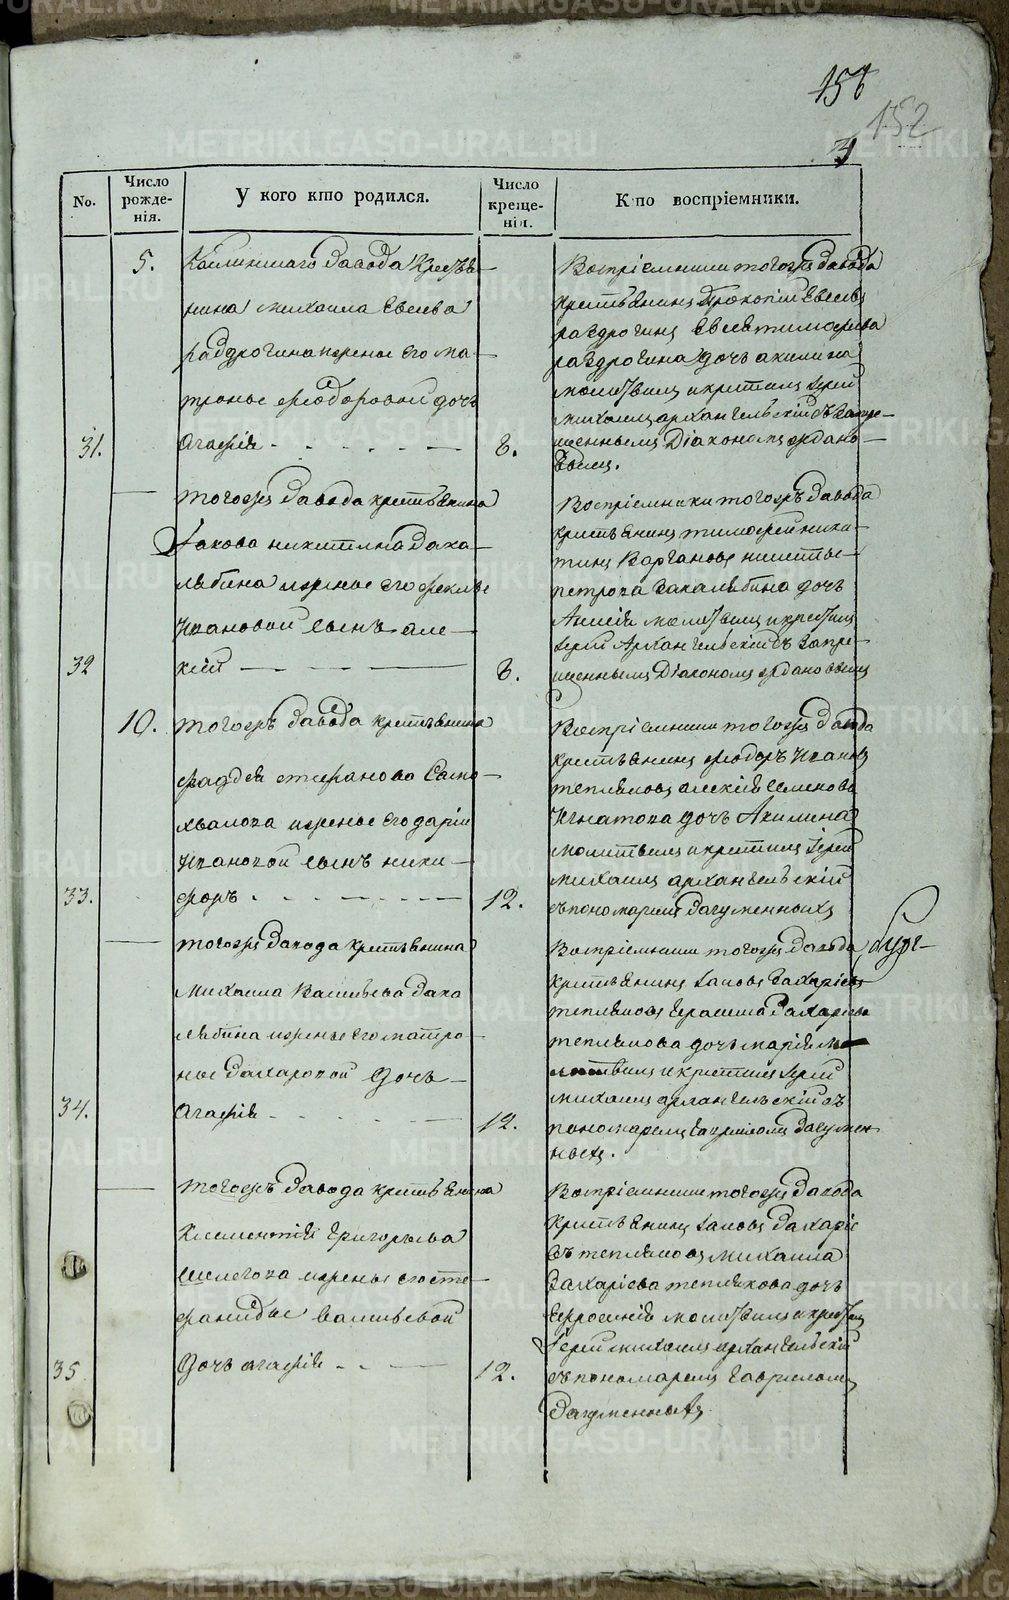 METRIKI.GASO-URAL.RU
152
3
No.
Число рожде-нія.
У кого кто родился.
Число креще-нія.
Кто воспріемники.
5.
завода Кресть-
нина Михаила Евсеева
раздрогина и жены его ма-
троны феодоровой дочь
31.
агафія
6.
Воспріемники тогожъ завода
крестьянинъ Прокопій Евсеевъ
раздрогинъ Евсея тимофеева
раздрогина дочь акилина
молитвилъ и крестилъ Іерей
Михаилъ архангельскій съ запре-
щеннымъ Діакономъ
тогожъ завода крестьянина
Іакова никитина заха-
лябина и жены его феклы
Ивановой сынъ але-
32
ксій
6.
Воспріемники тогожъ завода
крестьянинъ тимофей ники-
тинъ
петрова захалябина дочь
молитвилъ и крестилъ
Іерей Архангельскій съ запре-
щеннымъ Діакономъ
10.
тогожъ завода крестьянина
фаддея стефанова само-
хвалова и жены его даріи
Ивановой сынъ ники-
33.
форъ
12.
Воспріемники тогожъ завода
крестьянинъ феодоръ Ивановъ
тепляковъ алексія Семенова
Игнатова дочь Акилина
молитвилъ и крестилъ Іерей
михаилъ архангельскій
съ пономаремъ
тогожъ завода крестьянина
Михаила Васильева заха
лябина и жены его матро-
ны Захаровой дочь
34.
агафія
12.
Воспріемники тогожъ завода
крестьянинъ Іаковъ Захаріевъ
тепляковъ Герасима Захаріева
теплякова дочь марія мо
литвилъ и крестилъ Іерей
михаилъ архангельскій съ
пономаремъ Гавриломъ
тогожъ завода крестьянина
Климентія Григорьева
шелегова и жены его сте-
фаниды васильевой
35
дочь агафія
12.
Воспріемники тогожъ завода
крестьянинъ Іаковъ Захаріе
въ тепляковъ михаила
Захаріева теплякова дочь
Ефросинія молитвилъ и крестилъ
Іерей михаилъ архангельскій
съ пономаремъ Гавриломъ